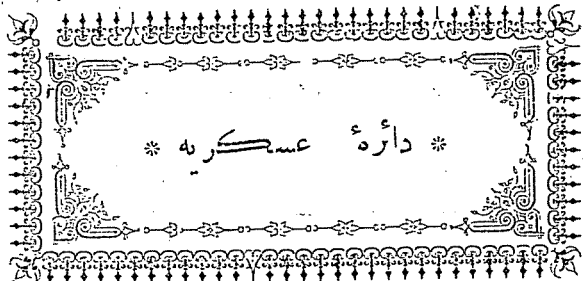 * دائرهٔ عسكريه *